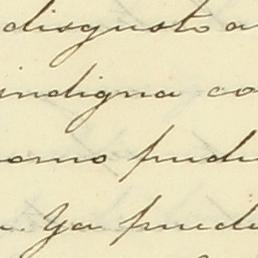 disgusto a
indigna co
omo pudi
. Ya puede